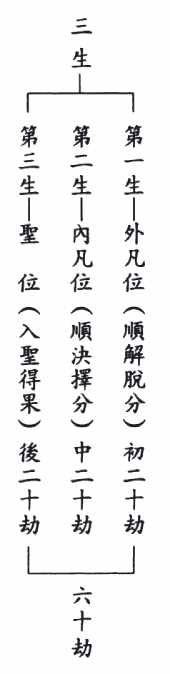 三生
第一生—外凡位(順解脫分)初二十劫
第二生—內凡位(順決擇分)中二十劫
第三生—聖 位(入聖得果)後二十劫
六十劫